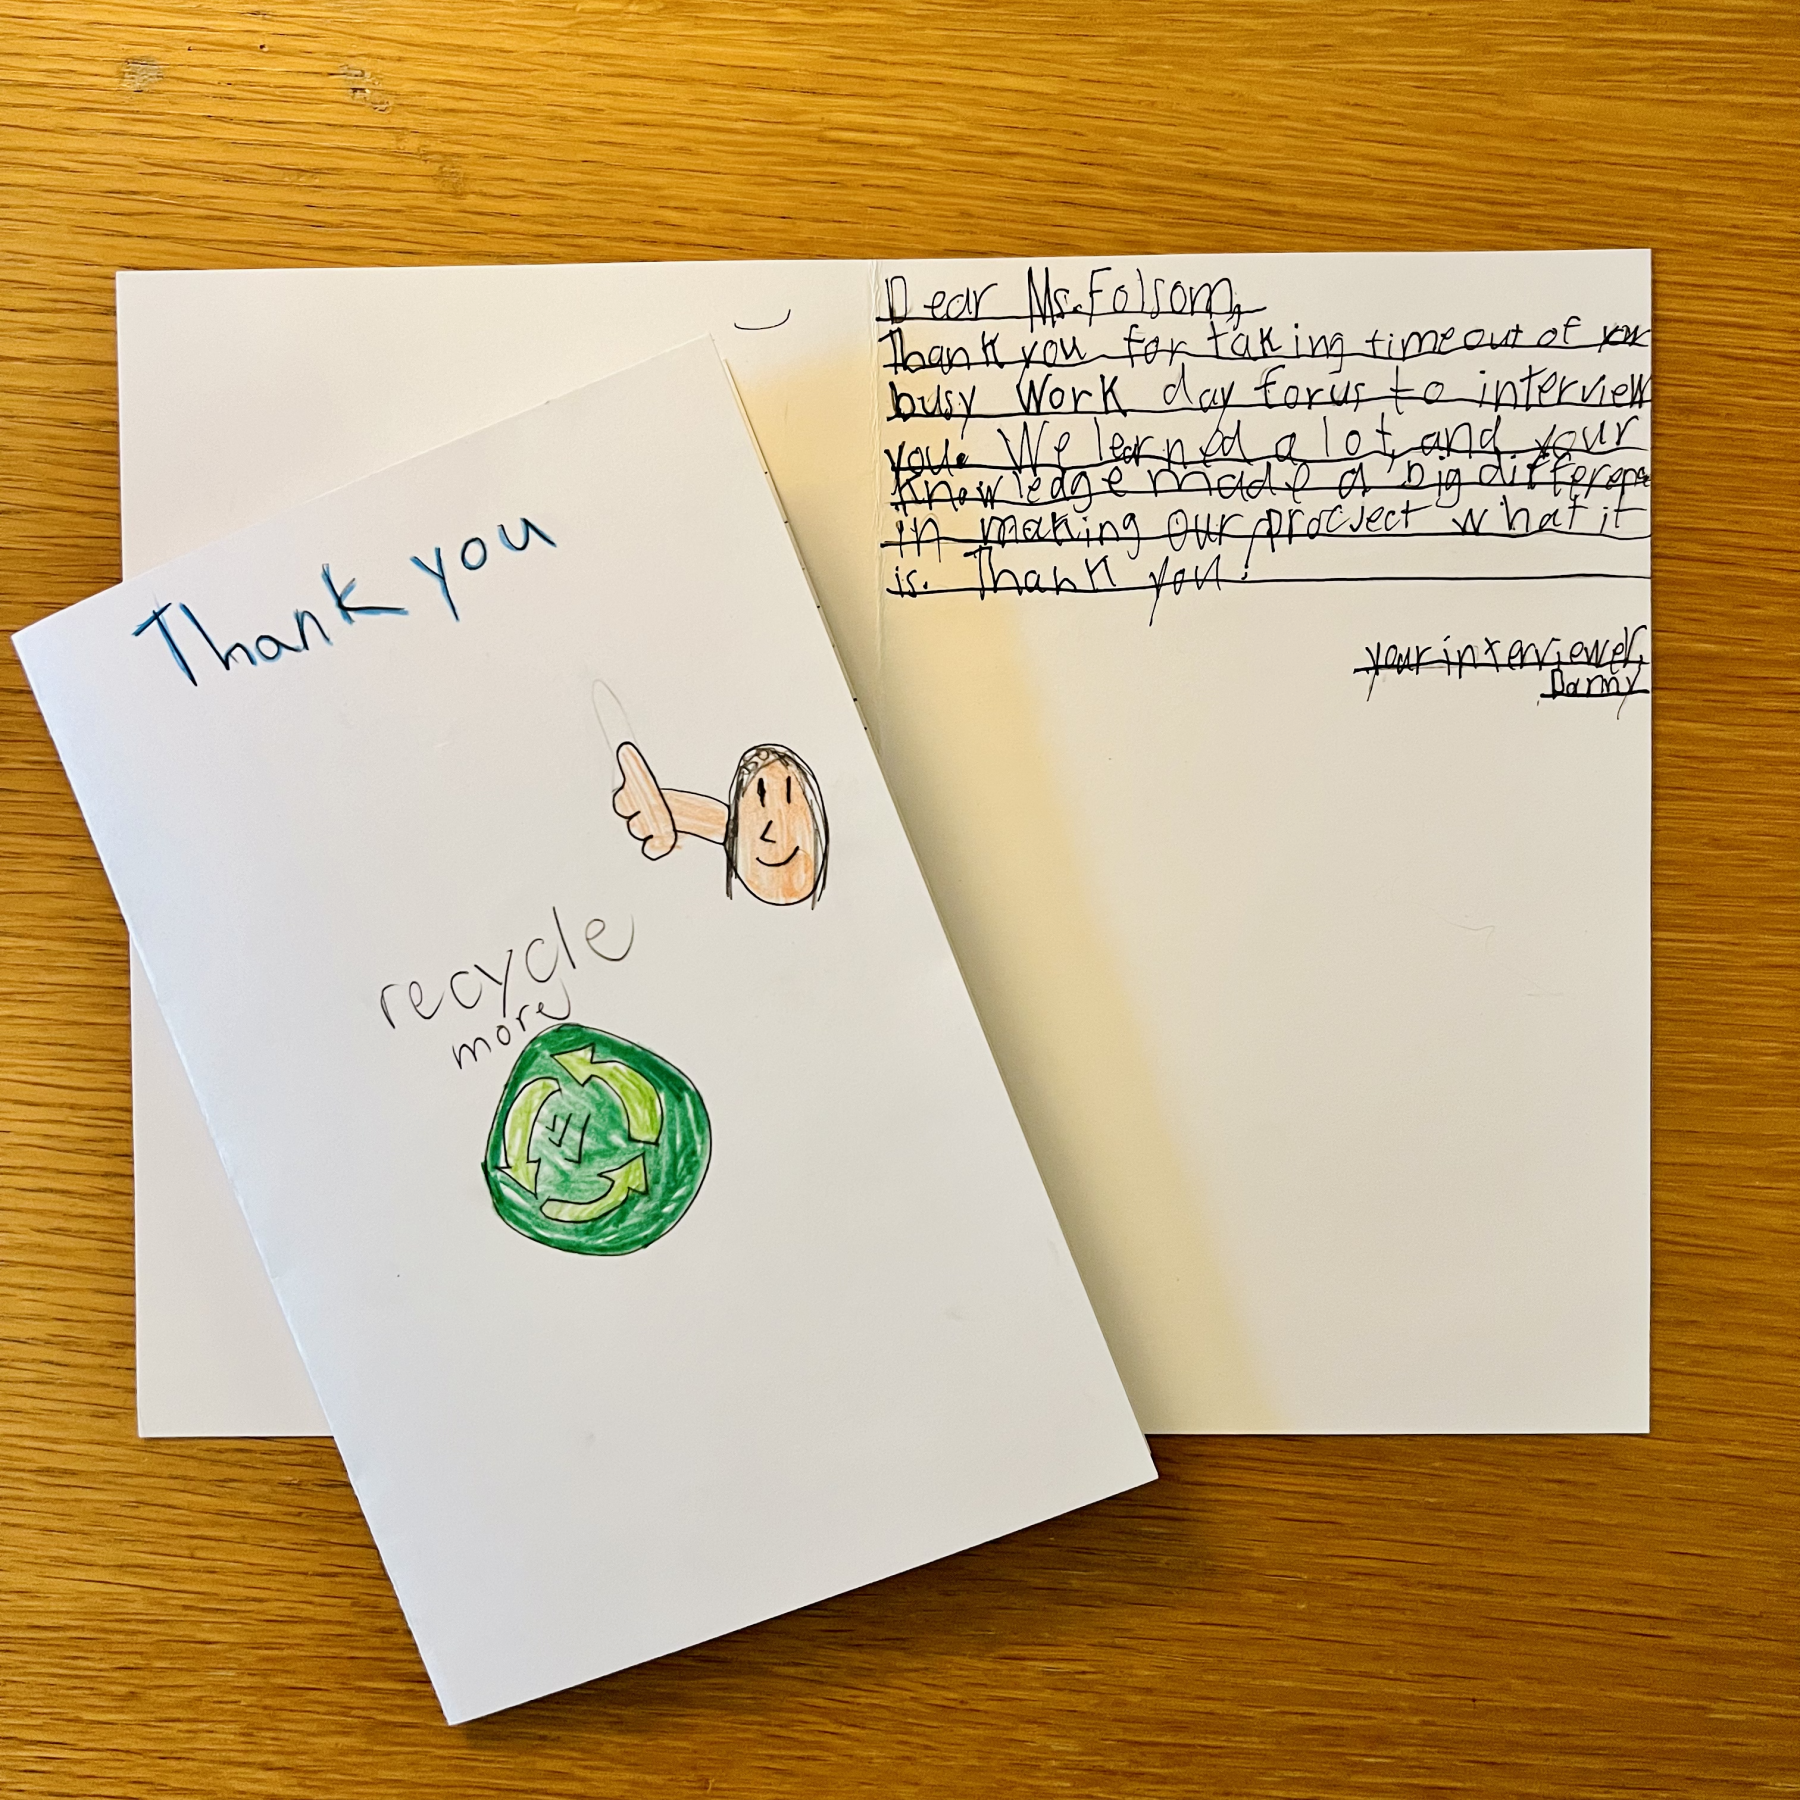 Thank you
recycle
more
Dear Ms. Folsom,
Thank you for taking time out of your
busy work day for us to interview
you. We learned a lot, and your
knowledge made a big difference
in making our procject what it
is. Thank you!
your interviewer,
Danny